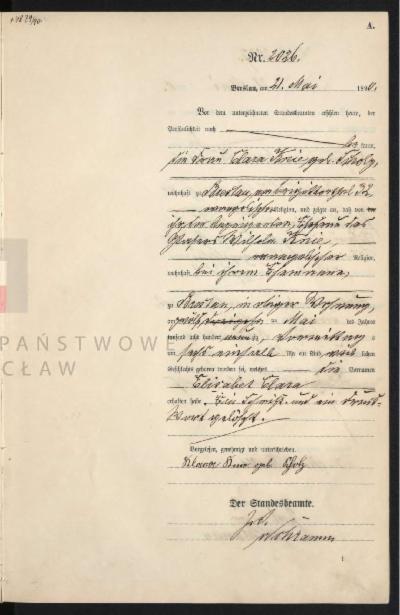 A.
Nr. 2026.
Breslau, am 21. Mai 1890.
Vor dem unterzeichneten Standesbeamten erschien heute, der
Persönlichkeit nach
kannt,
die Frau Clara Knie, geb. Scholz,
wohnhaft zu Breslau,
evangelischer Religion, und zeigte an, daß von
ihr, der Ehefrau des
Wilhelm Knie,
evangelischer Religion,
wohnhaft bei ihrem Ehemanne,
zu Breslau, in obiger Wohnung,
am Mai des Jahres
tausend acht hundert neunzig Vormittags
um sechs einhalb Uhr ein Kind weiblichen
Geschlechts geboren worden sei, welches die Vornamen
Elisabet Clara
erhalten habe. und ein Druck-
wort gelöscht.
Vorgelesen, genehmigt und unterschrieben.
Klara Knie geb. Scholz
Der Standesbeamte.
Schramm
PAŃSTWOWE
CŁAW